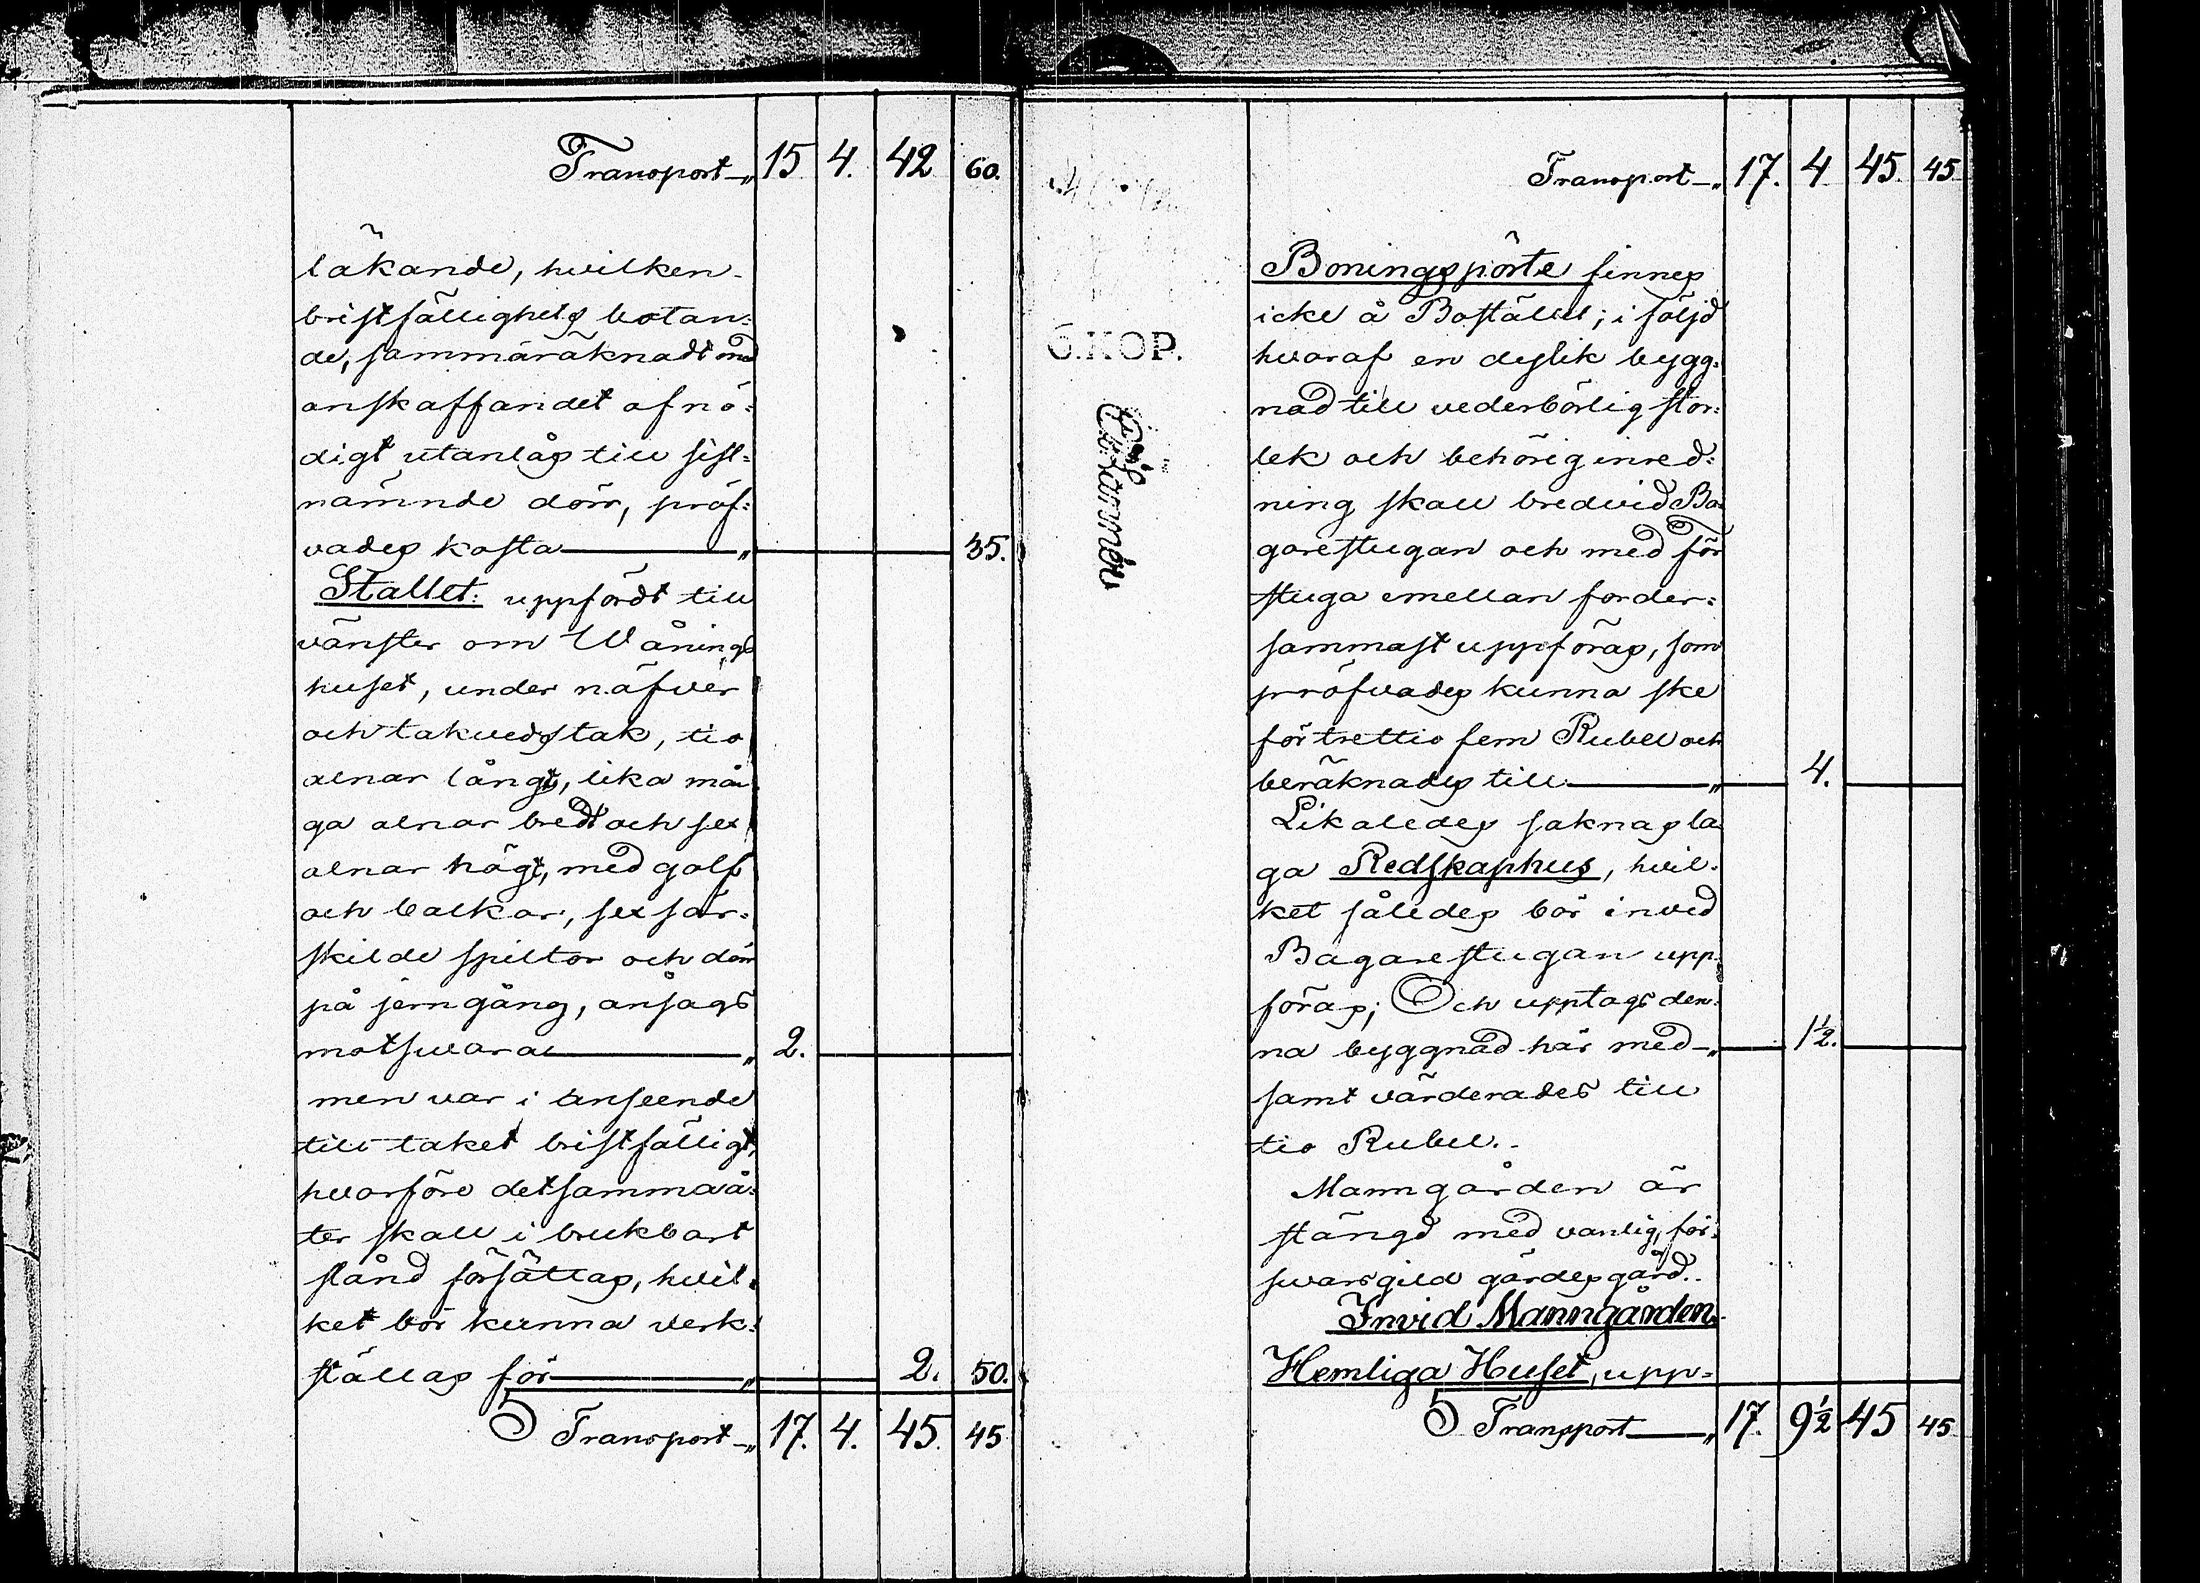 Transport 15 4. 42 60.
läkande, hvilken
bristfällighets botan:
de, sammaräknadt med
anskaffandet af nö:
digt utanlås till sist:
nämnde dörr, pröf:
vades kosta 35.
Stallet: uppfördt till
vänster om Wånings
huset, under näfver
och takvedstak, tio
alnar långt, lika mån
ga alnar bredt och sex
alnar högt, med golf
och balkar, sex sär:
skilde spiltor och dörr
på jerngång, ansågs
motsvara 2.
men var i anseende
till taket bristfälligt,
hvarföre detsamma å:
ter skall i brukbart
stånd försättas, hvil:
ket bör kunna verk:
ställas för 2. 50.
Transport 17. 4. 45. 45
6.KOP.
Transport 17. 4 45. 45
Boningspörte finnes
icke å Bostället; i följd
hvaraf en dylik bygg:
nad till vederbörlig stor:
lek och behörig inred:
ning skall bredvid Ba
garestugan och med för
stuga emellan forder:
sammast uppföras, som
pröfvades kunna ske
för trettio fem Rubel och
beräknades till 4.
Likaledes saknas la
ga Redskaphus, hvil:
ket således bör invid
Bagarestugan upp:
föras; Och upptogs den:
na byggnad här med 1½.
samt värderades till
tio Rubel.
Manngården är
stängd med vanlig, för:
svarsgild gärdesgård.
Invid Manngården.
Hemliga Huset, upp:
Transport 17. 9½ 45 45